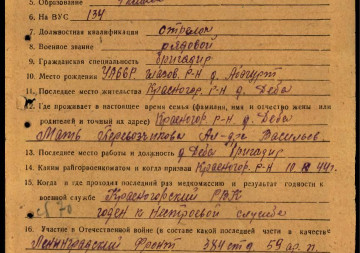 5. Образование
6. На ВУС 134
7. Должностная квалификация стрелок
8. Военное звание рядовой
9. Гражданская специальность бригадир
10. Место рождения УАССР р-н д.
11. Последнее место жительства Красногор. р-н д. Дебы
12. Где проживает в настоящее время семья (фамилия, имя и отчество жены или
родителей и точный их адрес) Красногор р-н д. Дебы
Мать Перевозчикова Васильев.
13. Последнее место работы и должность д. Дебы бригадир
14. Каким райгорвоенкоматом и когда призван Красногор. Р-Н 10 44г.
15. Когда и где проходил последний раз медкомиссию и результат годности к
военной службе Красногорский РВК
годен к строевой службе
16. Участие в Отечественной войне (в составе какой последней части в качестве
Ленинградский Фронт 59